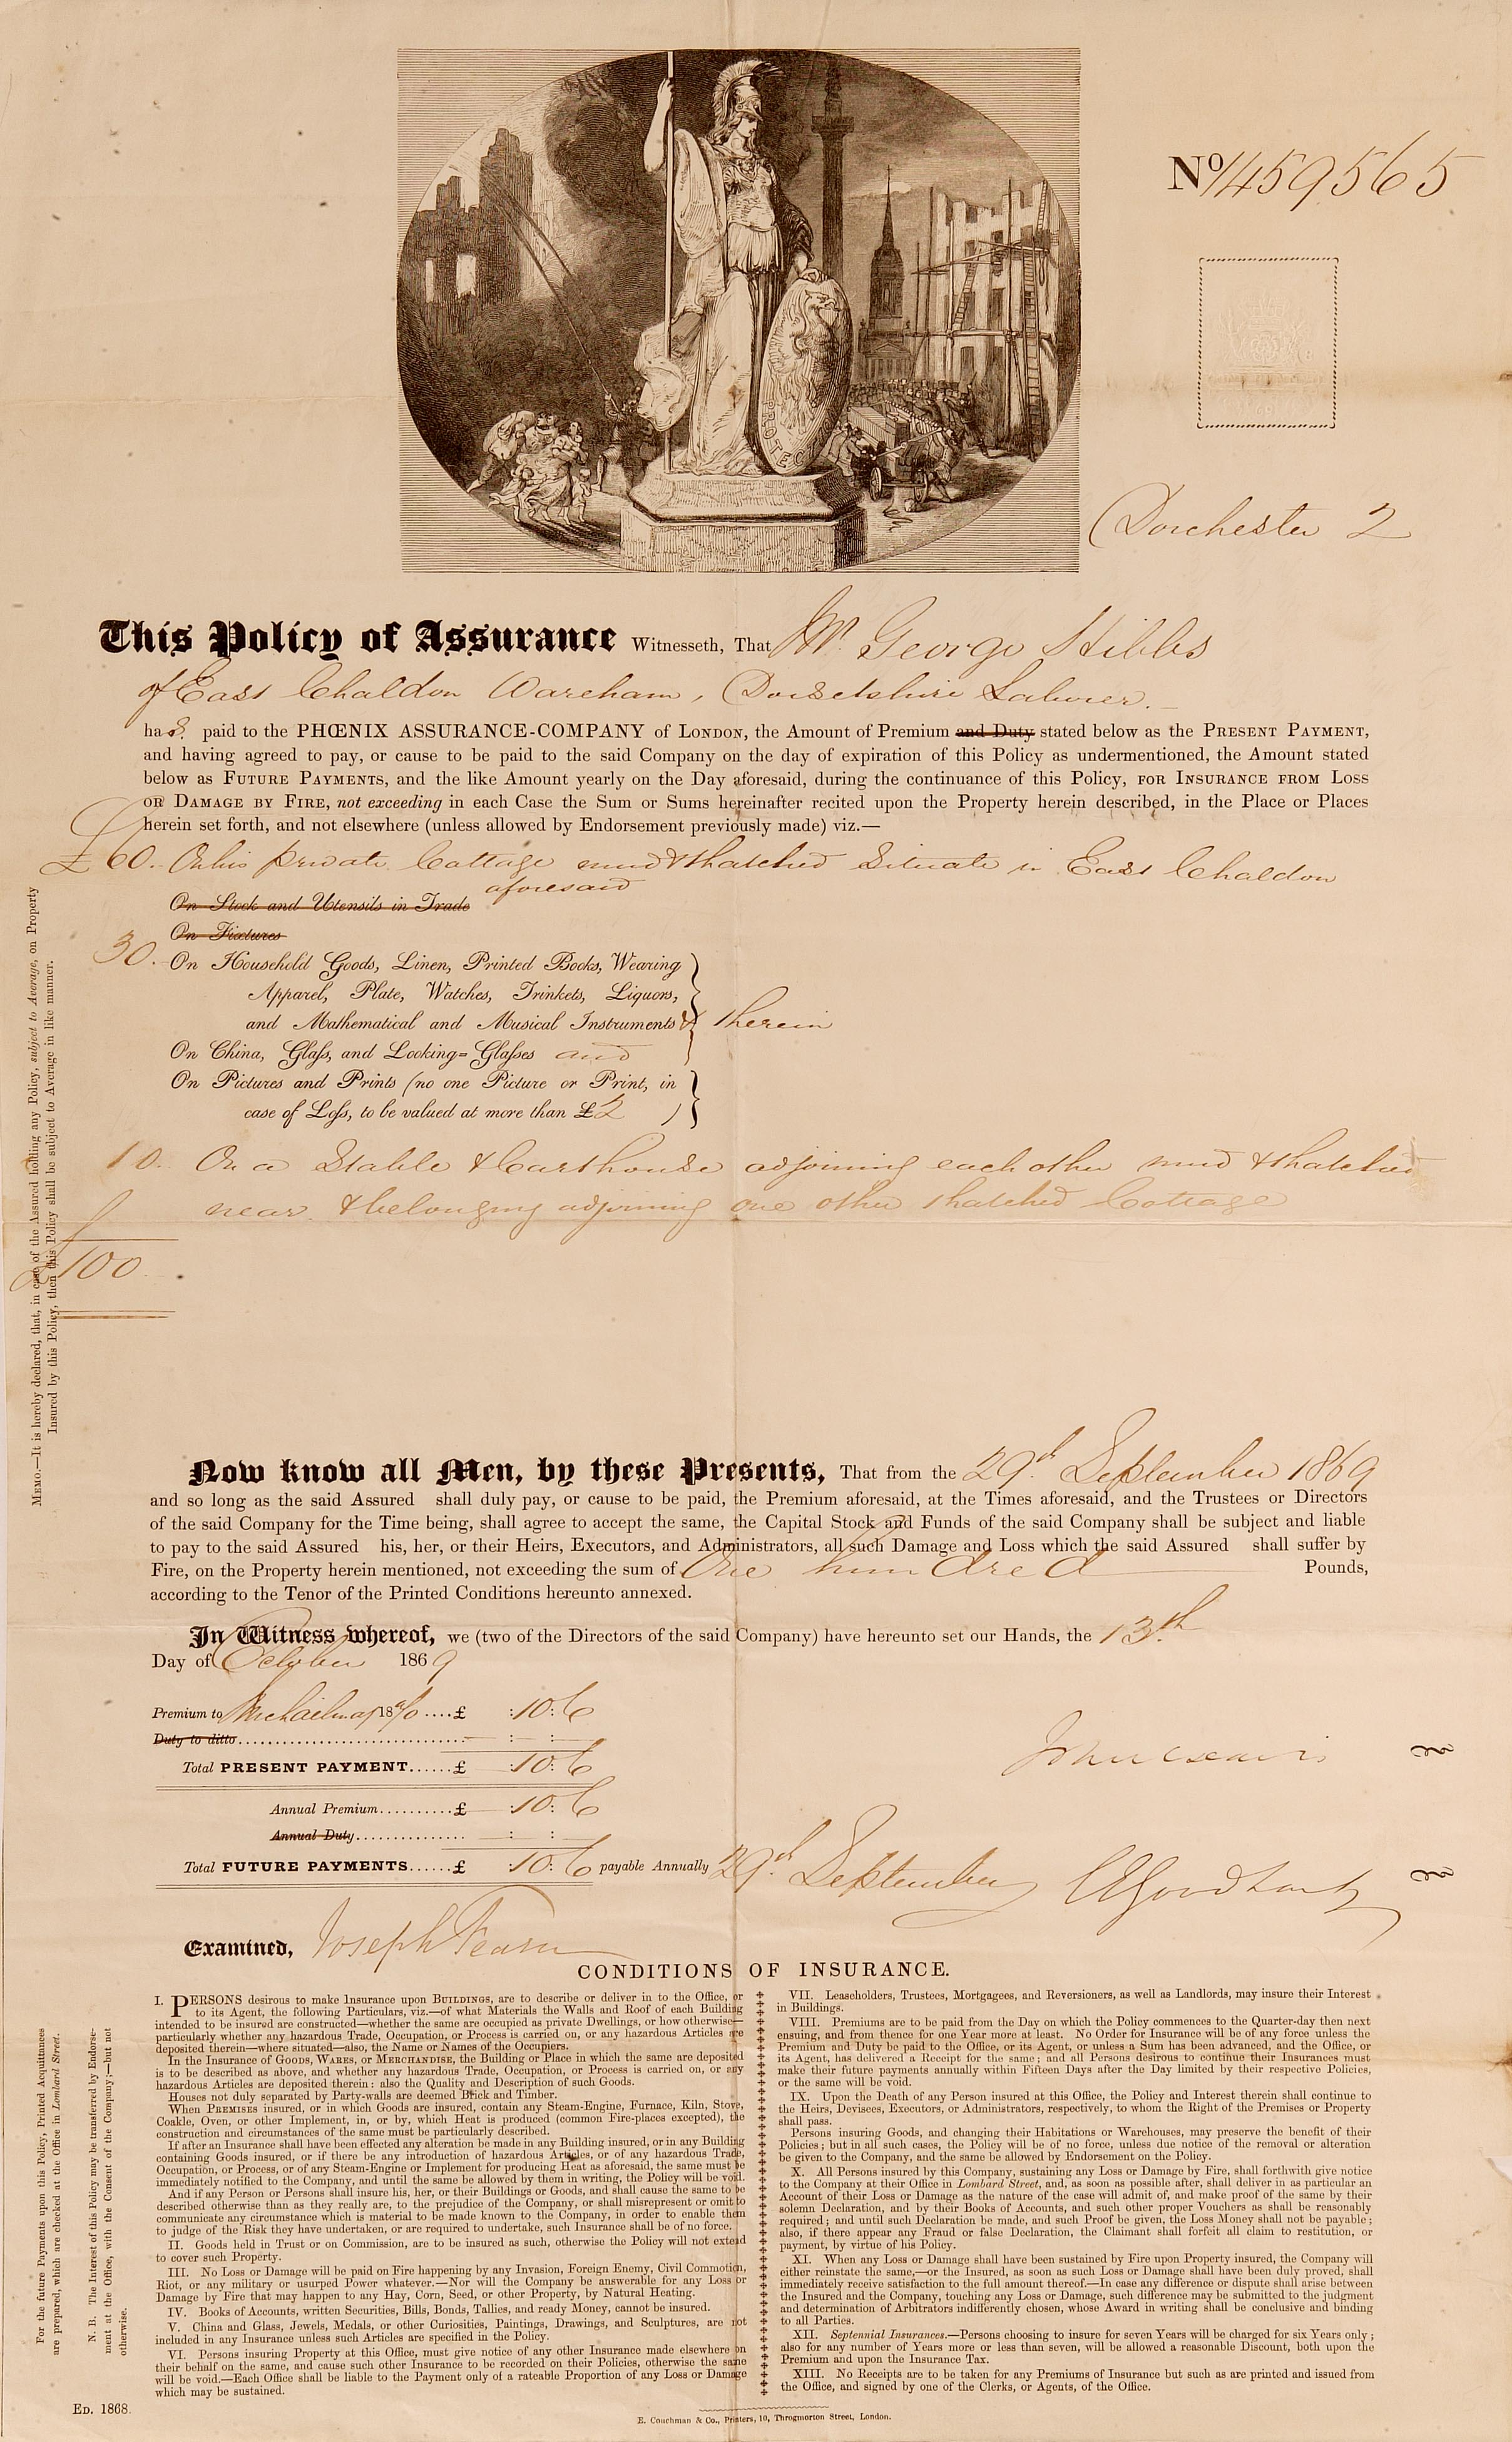 No 1459565
PROTECT
Dorchester 2
This Policy of Assurance Witnesseth, That Mr. George Hibbs
of East Chaldon Wareham, Dorsetshire Laborer.
has paid to the PHŒNIX ASSURANCE-COMPANY of LONDON, the Amount of Premium and Duty stated below as the PRESENT PAYMENT,
and having agreed to pay, or cause to be paid to the said Company on the day of expiration of this Policy as undermentioned, the Amount stated
below as FUTURE PAYMENTS, and the like Amount yearly on the Day aforesaid, during the continuance of this Policy, FOR INSURANCE FROM LOSS
OR DAMAGE BY FIRE, not exceeding in each Case the Sum or Sums hereinafter recited upon the Property herein described, in the Place or Places
herein set forth, and not elsewhere (unless allowed by Endorsement previously made) viz.—
£60. On his private Cottage mud & thatched Situate in East Chaldon
aforesaid
On Stock and Utensils in Trade
On Fixtures
30. On Household Goods, Linen, Printed Books, Wearing
Apparel, Plate, Watches, Trinkets, Liquors,
and Mathematical and Musical Instruments & therein
On China, Glass, and Looking-Glasses and
On Pictures and Prints (no one Picture or Print, in
case of Loss, to be valued at more than £2 )
10. On a Stable & Carthouse adjoining each other mud & thatched
near & belonging adjoining one other thatched Cottage
£100
MEMO.—It is hereby declared, that, in case of the Assured holding any Policy, subject to Average, on Property
Insured by this Policy, then this Policy shall be subject to Average in like manner.
Now know all Men, by these Presents, That from the 29th September 1869
and so long as the said Assured shall duly pay, or cause to be paid, the Premium aforesaid, at the Times aforesaid, and the Trustees or Directors
of the said Company for the Time being, shall agree to accept the same, the Capital Stock and Funds of the said Company shall be subject and liable
to pay to the said Assured his, her, or their Heirs, Executors, and Administrators, all such Damage and Loss which the said Assured shall suffer by
Fire, on the Property herein mentioned, not exceeding the sum of One hundred Pounds,
according to the Tenor of the Printed Conditions hereunto annexed.
In Witness whereof, we (two of the Directors of the said Company) have hereunto set our Hands, the 13th
Day of October 1869
Premium to Michaelmas 1870 ....£ :10:6
Duty to ditto.............................. : :
Total PRESENT PAYMENT......£ :10:6
Annual Premium..........£ :10:6
Annual Duty............... : :
Total FUTURE PAYMENTS......£ :10:6 payable Annually 29th September
Examined, Joseph Fearn
CONDITIONS OF INSURANCE.
I. PERSONS desirous to make Insurance upon BUILDINGS, are to describe or deliver in to the Office, or
to its Agent, the following Particulars, viz.—of what Materials the Walls and Roof of each Building
intended to be insured are constructed—whether the same are occupied as private Dwellings, or how otherwise—
particularly whether any hazardous Trade, Occupation, or Process is carried on, or any hazardous Articles are
deposited therein—where situated—also, the Name or Names of the Occupiers.
In the Insurance of GOODS, WARES, or MERCHANDISE, the Building or Place in which the same are deposited
is to be described as above, and whether any hazardous Trade, Occupation, or Process is carried on, or any
hazardous Articles are deposited therein: also the Quality and Description of such Goods.
Houses not duly separated by Party-walls are deemed Brick and Timber.
When PREMISES insured, or in which Goods are insured, contain any Steam-Engine, Furnace, Kiln, Stove,
Coakle, Oven, or other Implement, in, or by, which Heat is produced (common Fire-places excepted), the
construction and circumstances of the same must be particularly described.
If after an Insurance shall have been effected any alteration be made in any Building insured, or in any Building
containing Goods insured, or if there be any introduction of hazardous Articles, or of any hazardous Trade,
Occupation, or Process, or of any Steam-Engine or Implement for producing Heat as aforesaid, the same must be
immediately notified to the Company, and until the same be allowed by them in writing, the Policy will be void.
And if any Person or Persons shall insure his, her, or their Buildings or Goods, and shall cause the same to be
described otherwise than as they really are, to the prejudice of the Company, or shall misrepresent or omit to
communicate any circumstance which is material to be made known to the Company, in order to enable them
to judge of the Risk they have undertaken, or are required to undertake, such Insurance shall be of no force.
II. Goods held in Trust or on Commission, are to be insured as such, otherwise the Policy will not extend
to cover such Property.
III. No Loss or Damage will be paid on Fire happening by any Invasion, Foreign Enemy, Civil Commotion,
Riot, or any military or usurped Power whatever.—Nor will the Company be answerable for any Loss or
Damage by Fire that may happen to any Hay, Corn, Seed, or other Property, by Natural Heating.
IV. Books of Accounts, written Securities, Bills, Bonds, Tallies, and ready Money, cannot be insured.
V. China and Glass, Jewels, Medals, or other Curiosities, Paintings, Drawings, and Sculptures, are not
included in any Insurance unless such Articles are specified in the Policy.
VI. Persons insuring Property at this Office, must give notice of any other Insurance made elsewhere on
their behalf on the same, and cause such other Insurance to be recorded on their Policies, otherwise the same
will be void.—Each Office shall be liable to the Payment only of a rateable Proportion of any Loss or Damage
which may be sustained.
VII. Leaseholders, Trustees, Mortgagees, and Reversioners, as well as Landlords, may insure their Interest
in Buildings.
VIII. Premiums are to be paid from the Day on which the Policy commences to the Quarter-day then next
ensuing, and from thence for one Year more at least. No Order for Insurance will be of any force unless the
Premium and Duty be paid to the Office, or its Agent, or unless a Sum has been advanced, and the Office, or
its Agent, has delivered a Receipt for the same; and all Persons desirous to continue their Insurances must
make their future payments annually within Fifteen Days after the Day limited by their respective Policies,
or the same will be void.
IX. Upon the Death of any Person insured at this Office, the Policy and Interest therein shall continue to
the Heirs, Devisees, Executors, or Administrators, respectively, to whom the Right of the Premises or Property
shall pass.
Persons insuring Goods, and changing their Habitations or Warehouses, may preserve the benefit of their
Policies; but in all such cases, the Policy will be of no force, unless due notice of the removal or alteration
be given to the Company, and the same be allowed by Endorsement on the Policy.
X. All Persons insured by this Company, sustaining any Loss or Damage by Fire, shall forthwith give notice
to the Company at their Office in Lombard Street, and, as soon as possible after, shall deliver in as particular an
Account of their Loss or Damage as the nature of the case will admit of, and make proof of the same by their
solemn Declaration, and by their Books of Accounts, and such other proper Vouchers as shall be reasonably
required; and until such Declaration be made, and such Proof be given, the Loss Money shall not be payable;
also, if there appear any Fraud or false Declaration, the Claimant shall forfeit all claim to restitution, or
payment, by virtue of his Policy.
XI. When any Loss or Damage shall have been sustained by Fire upon Property insured, the Company will
either reinstate the same,—or the Insured, as soon as such Loss or Damage shall have been duly proved, shall
immediately receive satisfaction to the full amount thereof.—In case any difference or dispute shall arise between
the Insured and the Company, touching any Loss or Damage, such difference may be submitted to the judgment
and determination of Arbitrators indifferently chosen, whose Award in writing shall be conclusive and binding
to all Parties.
XII. Septennial Insurances.—Persons choosing to insure for seven Years will be charged for six Years only;
also for any number of Years more or less than seven, will be allowed a reasonable Discount, both upon the
Premium and upon the Insurance Tax.
XIII. No Receipts are to be taken for any Premiums of Insurance but such as are printed and issued from
the Office, and signed by one of the Clerks, or Agents, of the Office.
For the future Payments upon this Policy, Printed Acquittances
are prepared, which are checked at the Office in Lombard Street.
N. B. The Interest of this Policy may be transferred by Endorse-
ment at the Office, with the Consent of the Company;—but not
otherwise.
ED. 1868.
E. Couchman & Co., Printers, 10, Throgmorton Street, London.